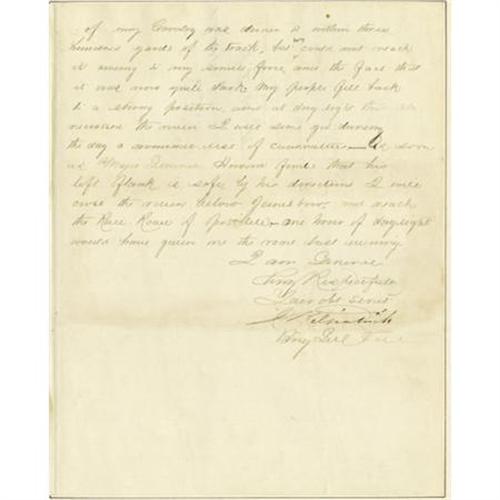 of my Cavalry was driven to within three
hundred yards of the track, but could not reach
it owing to my small force, and the fact that
it was now quite dark. My people fell back
to a strong position, and at day light
the river I will send you during
the day a commence of As soon
as Major General Howard finds that his
left flank is safe by his directions I will
cross the river below Jonesboro, and reach
the Rail Road if possible - one hour of daylight
would have given me the road last evening
I am General
Very Respectfully
Your obt servt
J Kilpatrick
Brig Genl